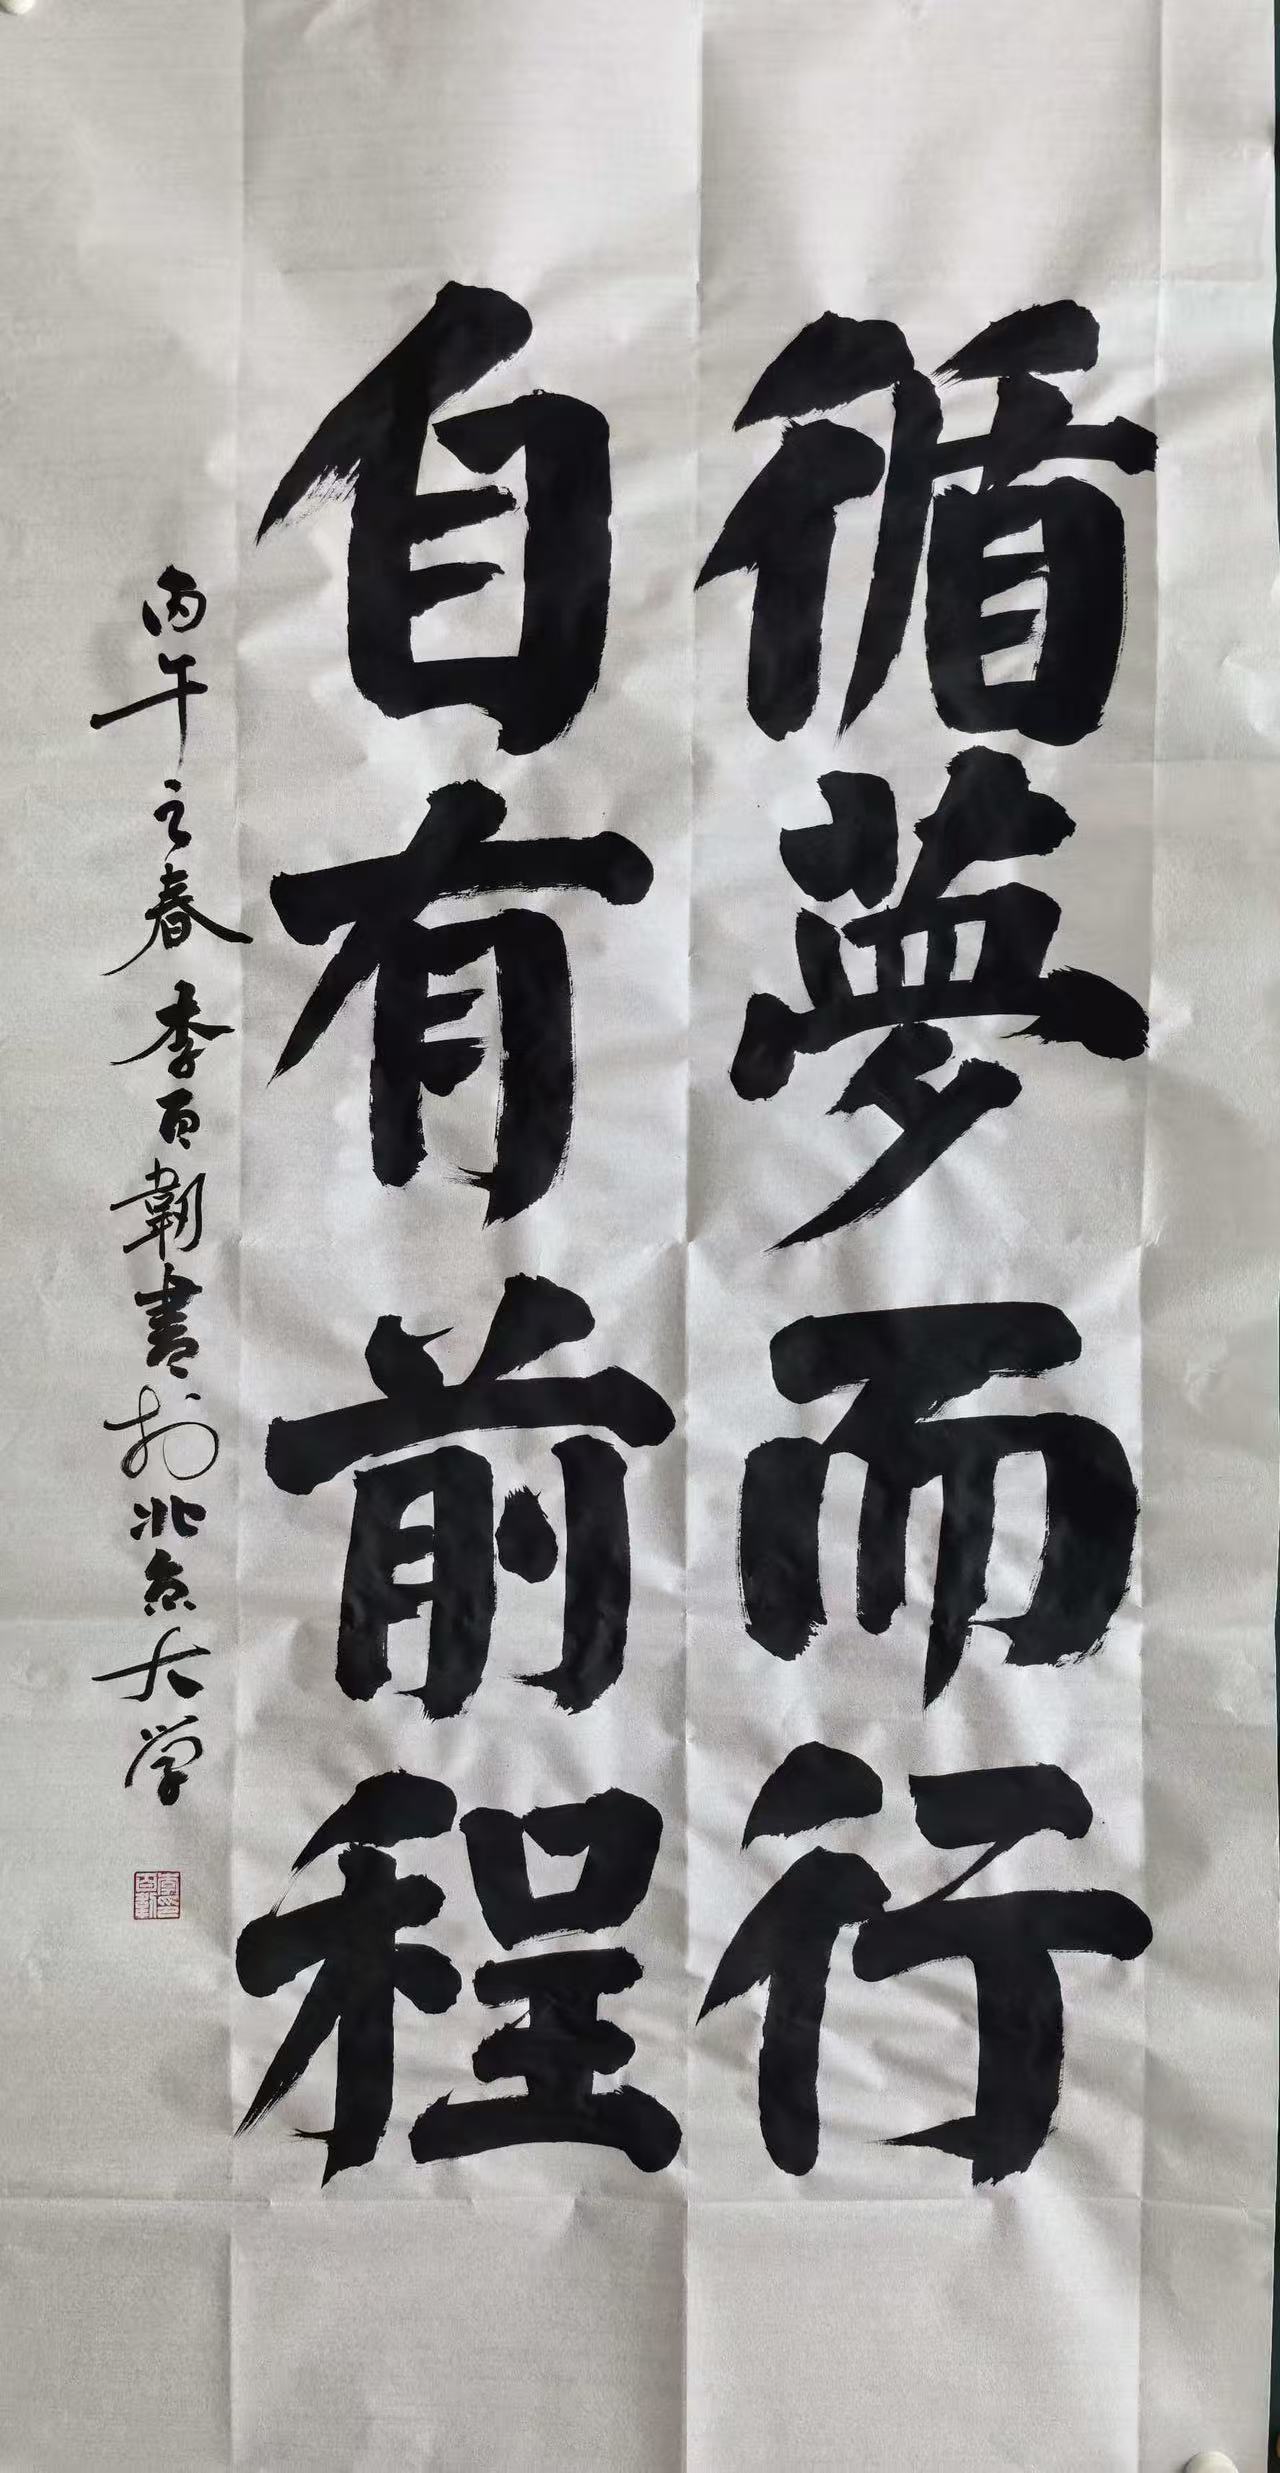 循夢而行
自有前程
丙午之春 李百韌書於北京大学